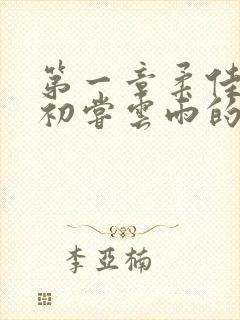 第一章柔佳
初尝云雨的
李亚楠